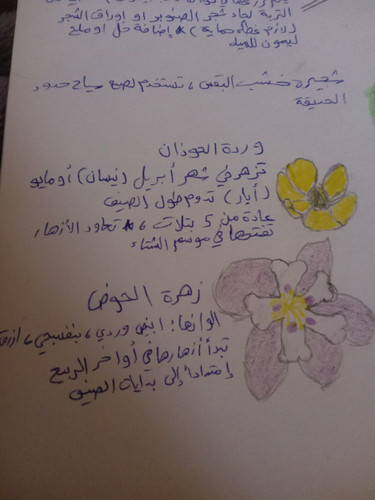 التربة لحاء شجر الصنوبر او اوراق الشجر
(لازم غطاء حماية) * إضافة خل او ملح
ليمون للمياه
شجيرة خشب البقس ، تستخدم لصنع سياج حدود
الحديقة
وردة الحوذان
تزهر في شهر أبريل (نيسان) أو مايو
(أيار) تدوم طول الصيف
عادة من 5 بتلات ، * تعاود الأزهار
تفتحها في موسم الشتاء
زهرة الحوض
الوانها: ابيض وردي ، بنفسجي ، ازرق
تبدأ أزهارها في أواخر الربيع
إمتداداً إلى بدايات الصيف